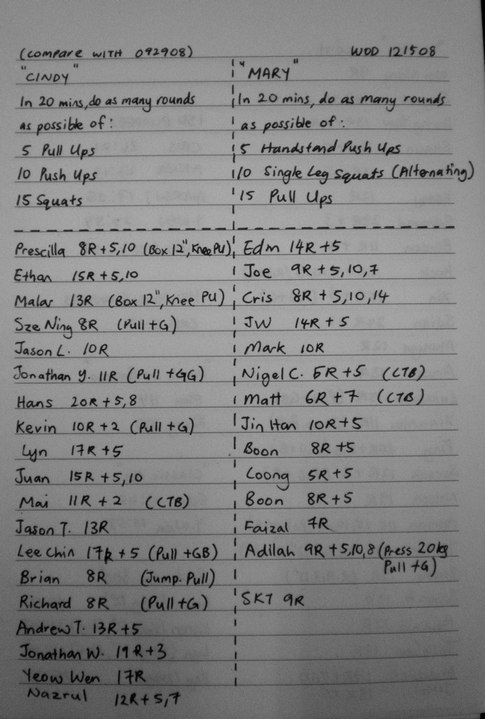 (compare WITH 092908)
WOD 121508
"CINDY"
In 20 mins, do as many rounds
as possible of:
5 Pull Ups
10 Push Ups
15 Squats
Prescilla 8R + 5,10 (Box 12", Knee PU)
Ethan 15R + 5,10
Malar 13R (Box 12", Knee PU)
Sze Ning 8R (Pull +G)
Jason L. 10R
Jonathan Y. 11R (Pull +GG)
Hans 20R + 5,8
Kevin 10R + 2 (Pull +G)
Lyn 17R + 5
Juan 15R + 5,10
Mai 11R + 2 (CTB)
Jason T. 13R
Lee Chin 17R + 5 (Pull +GB)
Brian 8R (Jump. Pull)
Richard 8R (Pull +G)
Andrew T. 13R + 5
Jonathan W. 19R + 3
Yeow Wen 17R
Nazrul 12R + 5,7
"MARY"
In 20 mins, do as many rounds
as possible of:
5 Handstand Push Ups
10 Single Leg Squats (Alternating)
15 Pull Ups
Edm 14R +5
Joe 9R + 5,10,7
Cris 8R + 5,10,14
JW 14R + 5
Mark 10R
Nigel C. 5R +5 (CTB)
Matt 6R +7 (CTB)
Jin Han 10R +5
Boon 8R +5
Loong 5R +5
Boon 8R +5
Faizal 7R
Adilah 9R +5,10,8 (Press 20kg
Pull +G)
SKT 9R